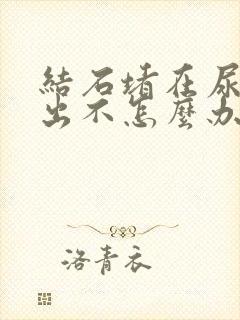 結石堵在尿
出不怎麼办
洛青衣